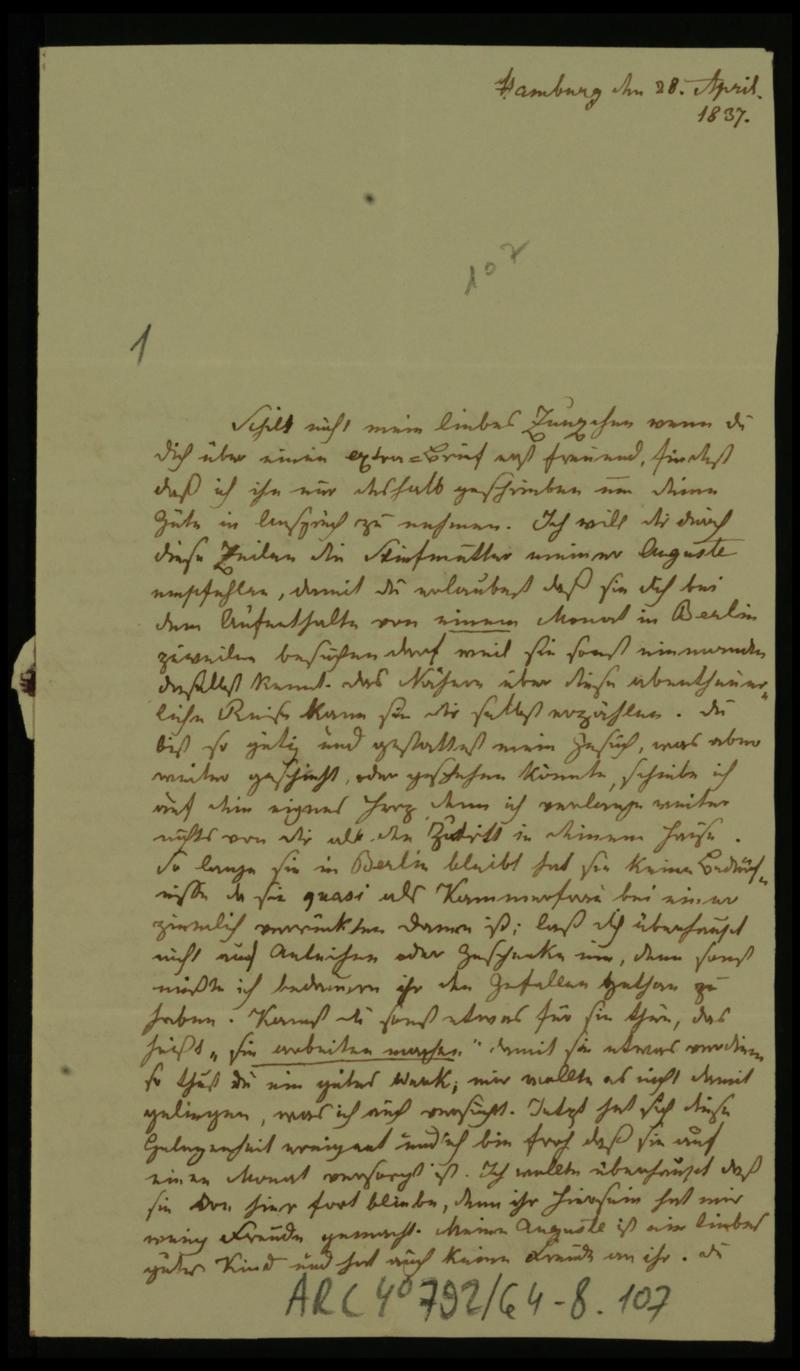 Hamburg den 28. April.
1837.
107
1
Schilt nicht mein liebes wenn du
dich über einen extra=Brief erst freuend, findest
daß ich ihn nur deshalb geschrieben um deine
Güte in Anspruch zu nehmen. Ich will dir durch
diese Zeilen die Stiefmutter meiner Auguste
empfehlen, damit du erlaubest daß sie dich bei
dem Aufenthalte von einem Monat in Berlin
zuweilen besuchen darf weil sie sonst niemanden
daselbst kennt. das Nähere über diese abentheuer„
liche Reise kann sie dir selbst erzählen. du
bist so gütig und gestattest mein Gesuch, was aber
weiter geschieht, oder geschehen könnte, schiebe ich
auf dein eignes Herz, denn ich verlange weiter
nichts von dir als den Zutritt in deinem Hause.
So lange sie in Berlin bleibt hat sie keine Bedürf„
nisse da sie quasi als Kammerfrau bei einer
ziemlich verrückten Dame ist; laß dich überhaupt
nicht auf Anleihen oder Geschenke ein, denn sonst
müßte ich bedauern ihr den Gefallen gethan zu
haben. Kannst du sonst etwas für sie thun, das
heißt „sie arbeiten machen" damit sie etwas verdiene
so thust du ein gutes Werk; mir wollte es nicht damit
gelingen, was ich auch versucht. Jetzt hat sich diese
Gelegenheit ereignet und ich bin froh daß sie auf
einen Monat versorgt ist. Ich wollte überhaupt daß
sie von hier fort bliebe, denn ihr Hiersein hat mir
wenig Freude gemacht. Meine Auguste ist ein liebes
gutes Kind und hat auch keine Freude an ihr. du
ARC 4° 792/64-8.107